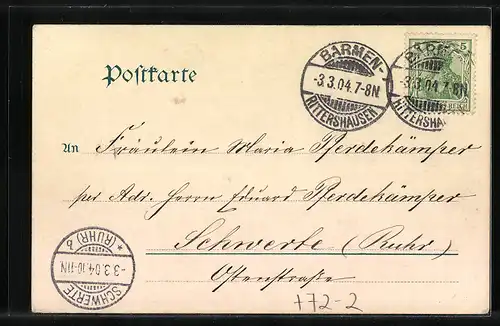 Postkarte
BARMEN-
-3.3.04.7-8N
RITTERSHAUSEN
BARMEN-
-3.3.04.7-8N
RITTERSHA
5
An Fräulein Maria Pferdekämper
per Adr. Herrn Eduard Pferdekämper
Schwerte (Ruhr)
Ostenstraße
* (RUHR) b
-3.3.04.10-11N
SCHWERTE
+72-2